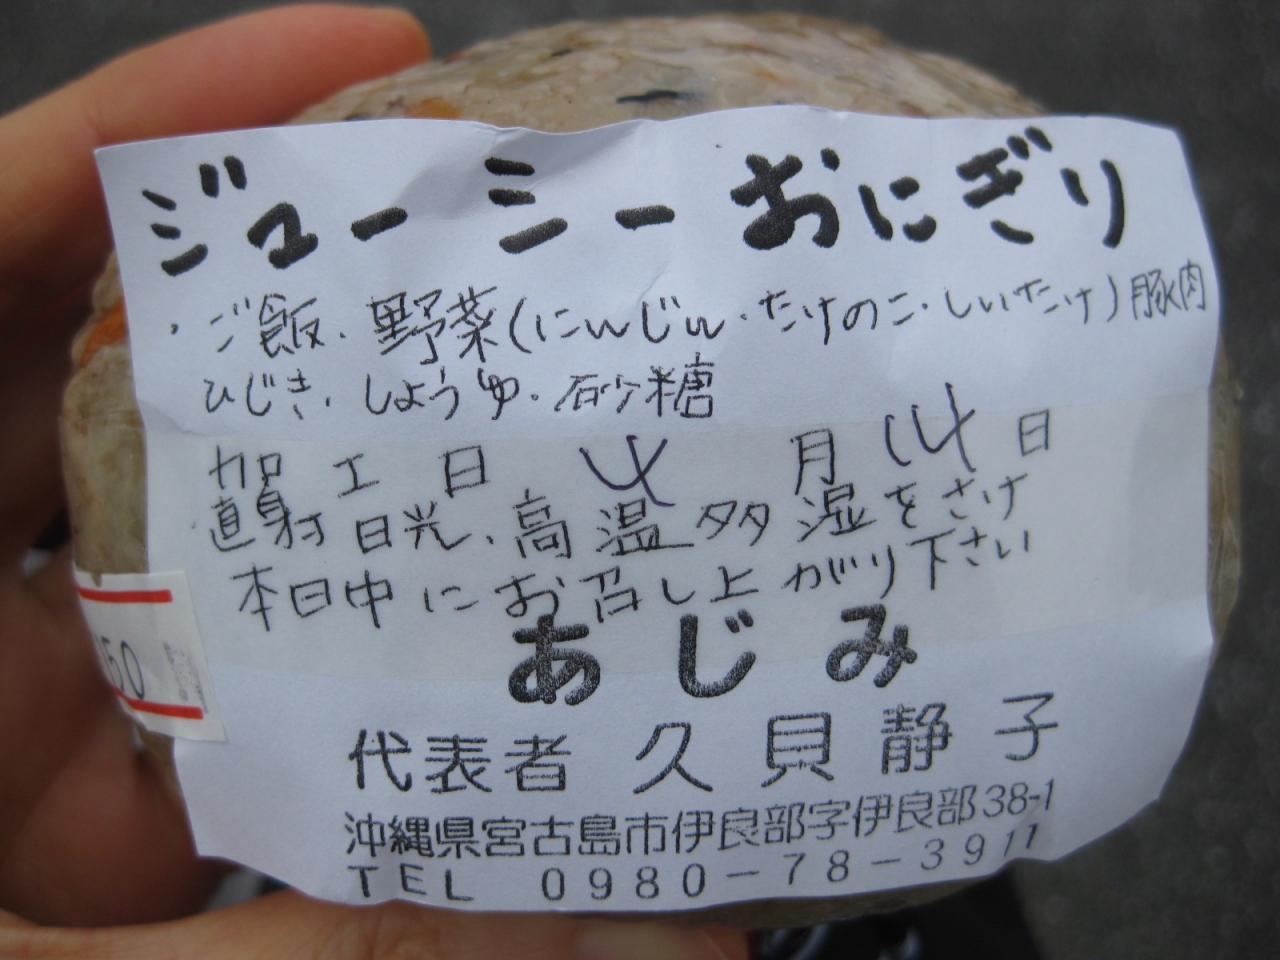 ジューシーおにぎり
・ご飯・野菜(にんじん・たけのこ・しいたけ)豚肉
ひじき・しょうゆ・砂糖
加工日 4月14日
直射日光、高温多湿をさけ
本日中にお召し上がり下さい
あじみ
代表者 久貝静子
沖縄県宮古島市伊良部字伊良部38-1
TEL 0980-78-3911
50